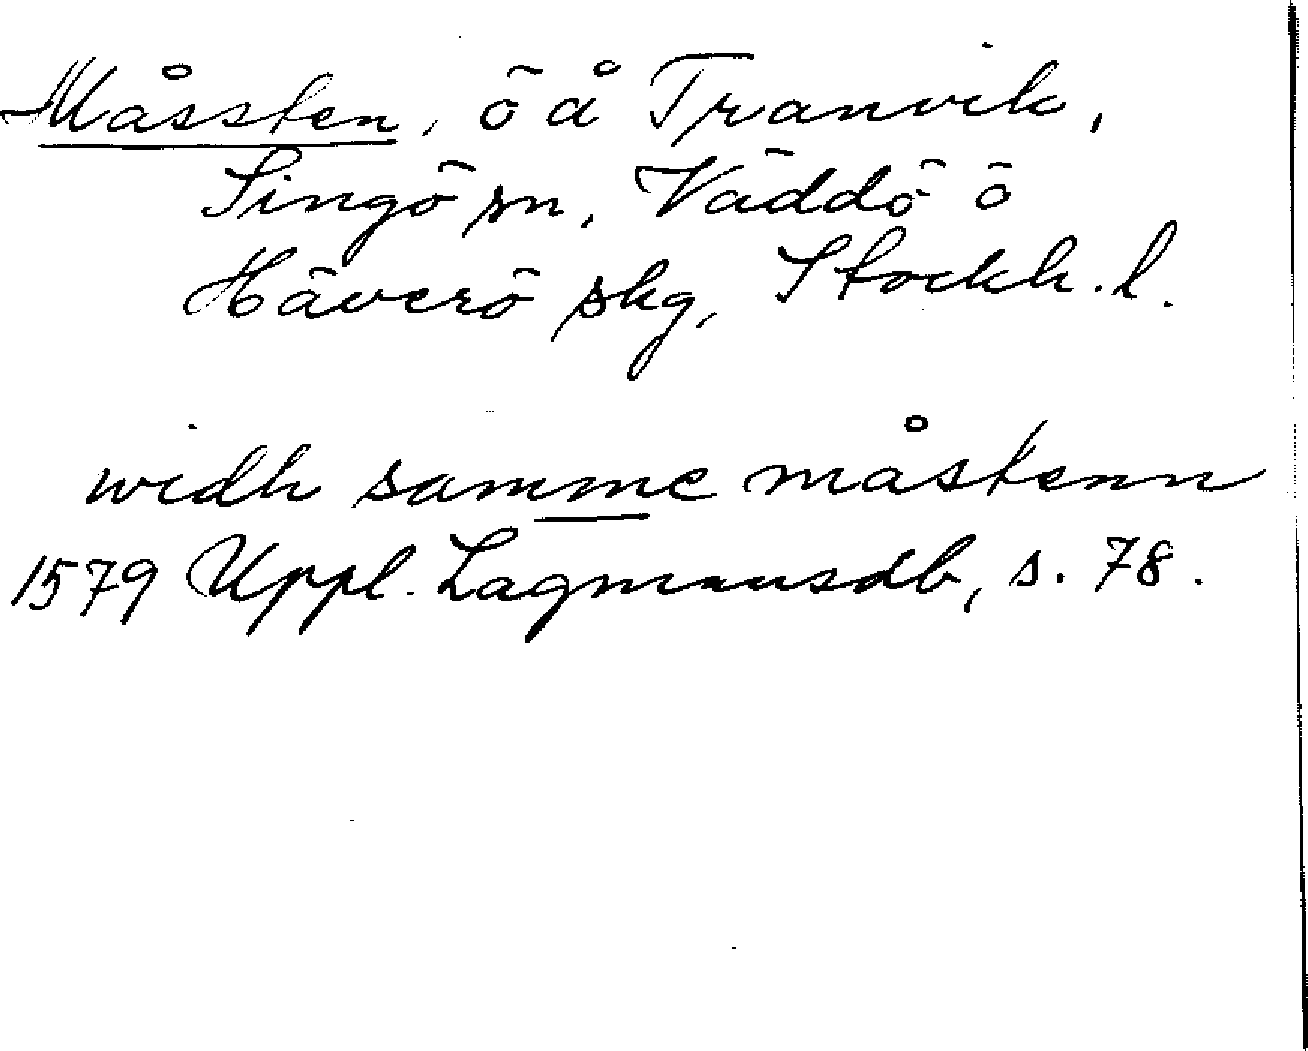 Måssten, ö å Tranvik,
Singö sn, Väddö ö
Häverö skg, Stockh. l.
widh samme måstenn
1579 Uppl. Lagmansdb, s. 78.